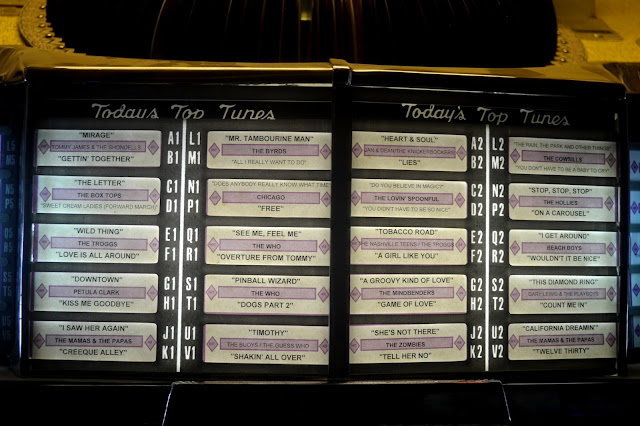 Today's Top Tunes
"MIRAGE"
TOMMY JAMES & THE SHONDELLS
"GETTIN' TOGETHER"
A1
B1
"THE LETTER"
THE BOX TOPS
"SWEET DREAM LADIES (FORWARD MARCH)"
C1
D1
"WILD THING"
THE TROGGS
"LOVE IS ALL AROUND"
E1
F1
"DOWNTOWN"
PETULA CLARK
"KISS ME GOODBYE"
G1
H1
"I SAW HER AGAIN"
THE MAMAS & THE PAPAS
"CREEQUE ALLEY"
J1
K1
L1
M1
"MR. TAMBOURINE MAN"
THE BYRDS
"ALL I REALLY WANT TO DO"
N1
P1
"DOES ANYBODY REALLY KNOW WHAT TIME"
CHICAGO
"FREE"
Q1
R1
"SEE ME, FEEL ME"
THE WHO
"OVERTURE FROM TOMMY"
S1
T1
"PINBALL WIZARD"
THE WHO
"DOGS PART 2"
U1
V1
"TIMOTHY"
THE BUOYS / THE GUESS WHO
"SHAKIN' ALL OVER"
Today's Top Tunes
"HEART & SOUL"
JAN & DEAN/THE KNICKERBOCKERS
"LIES"
A2
B2
"DO YOU BELIEVE IN MAGIC?"
THE LOVIN' SPOONFUL
"YOU DIDN'T HAVE TO BE SO NICE"
C2
D2
"TOBACCO ROAD"
THE NASHVILLE TEENS / THE TROGGS
"A GIRL LIKE YOU"
E2
F2
"A GROOVY KIND OF LOVE"
THE MINDBENDERS
"GAME OF LOVE"
G2
H2
"SHE'S NOT THERE"
THE ZOMBIES
"TELL HER NO"
J2
K2
L2
M2
"THE RAIN, THE PARK AND OTHER THINGS"
THE COWSILLS
"YOU DON'T HAVE TO BE A BABY TO CRY"
N2
P2
"STOP, STOP, STOP"
THE HOLLIES
"ON A CAROUSEL"
Q2
R2
"I GET AROUND"
BEACH BOYS
"WOULDN'T IT BE NICE"
S2
T2
"THIS DIAMOND RING"
GARY LEWIS & THE PLAYBOYS
"COUNT ME IN"
U2
V2
"CALIFORNIA DREAMIN'
THE MAMAS & THE PAPAS
"TWELVE THIRTY"